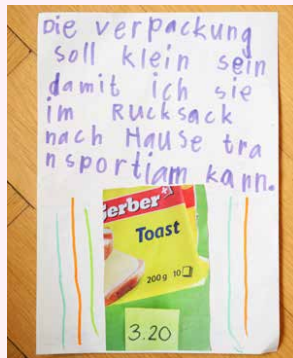 Die verpackung
soll klein sein
damit ich sie
im Rucksack
nach Hause tra
nsportiam kann.
Gerber
Toast
200g 10
3.20